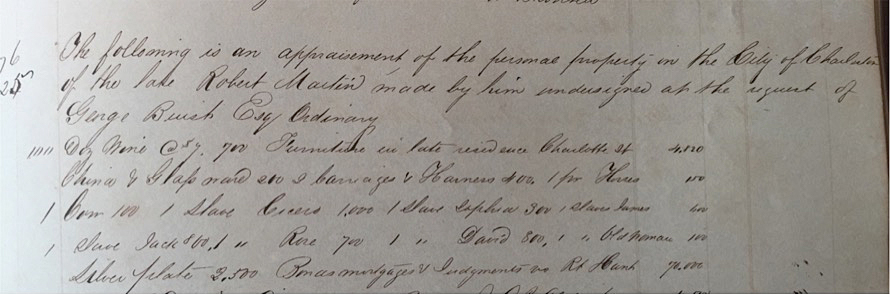 The following is an appraisement of the personal property in the City of Charleston
of the late Robert Martin made by him undersigned at the request of
George Buist Esq Ordinary
100 Doz Wine @ $7. 700 Furniture in late residence Charlotte St 4,000
China & Glass ware 200 2 Carriages & Harness 400, 1 pr Horses
1 Cow 100 1 Slave Cicero 1,000 1 Slave Sophia 300 1 Slave James 600
1 Slave Jack 800, 1 " Rose 700 1 " David 800, 1 " Old Woman 100
Silver plate 2,500 Bonds mortgages & Judgments 70,000